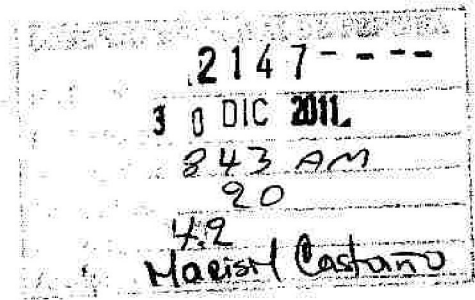 2147----
30 DIC 2011.
843 AM
20
4.2
Marisol Castaño